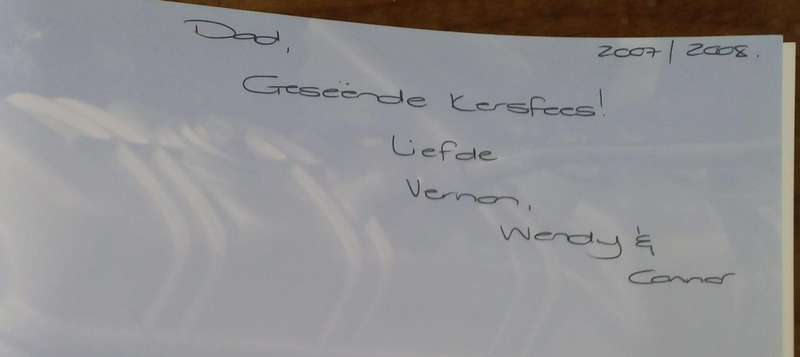 Dad,
2007/2008.
Geseënde Kersfees!
Liefde
Vernon,
Wendy &
Connor